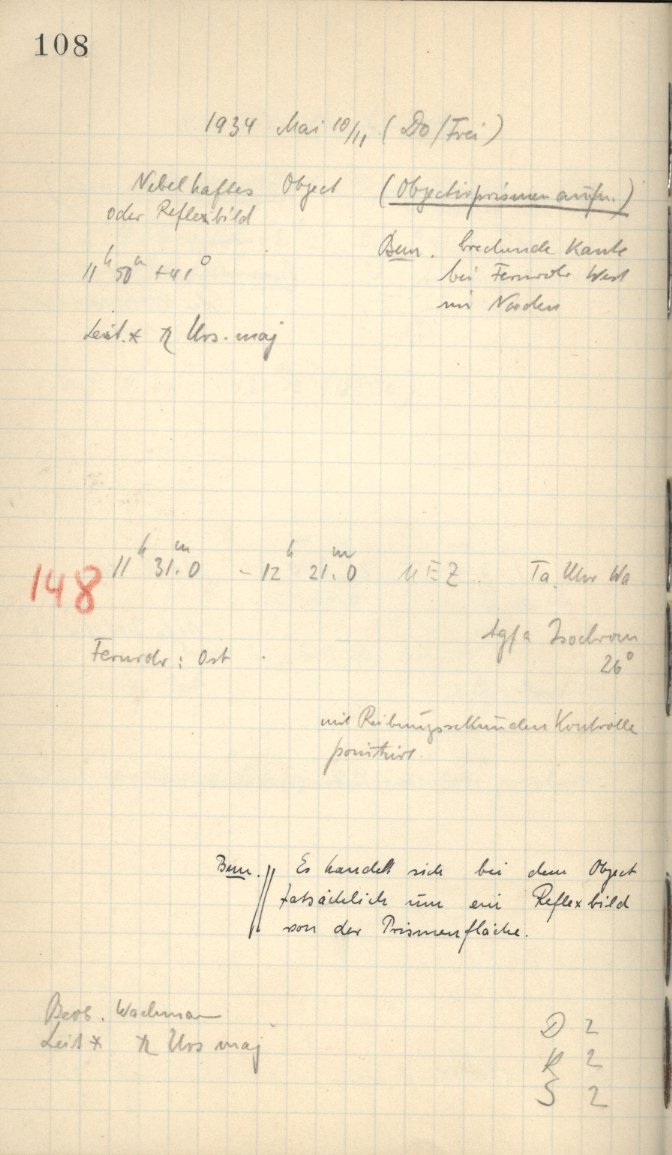 108
1934 Mai 10/11 (Do/Frei)
Nebelhaftes Object (Objectivprismenaufn.)
oder Reflexbild
Bem. brechende Kante
11h 50m +41° bei Fernrohr West
im Norden
Leit.* χ Urs. maj
148 11h 31.m0 - 12h 21.m0 MEZ. Ta. Uhr Wa
Agfa Isochrom
Fernrohr: Ost. 26°
mit Reibungssekunden Kontrolle
Bem. Es handelt sich bei dem Object
tatsächlich um ein Reflexbild
von der Prismenfläche.
Beob. Wachmann D 2
Leit * χ Urs maj R 2
S 2